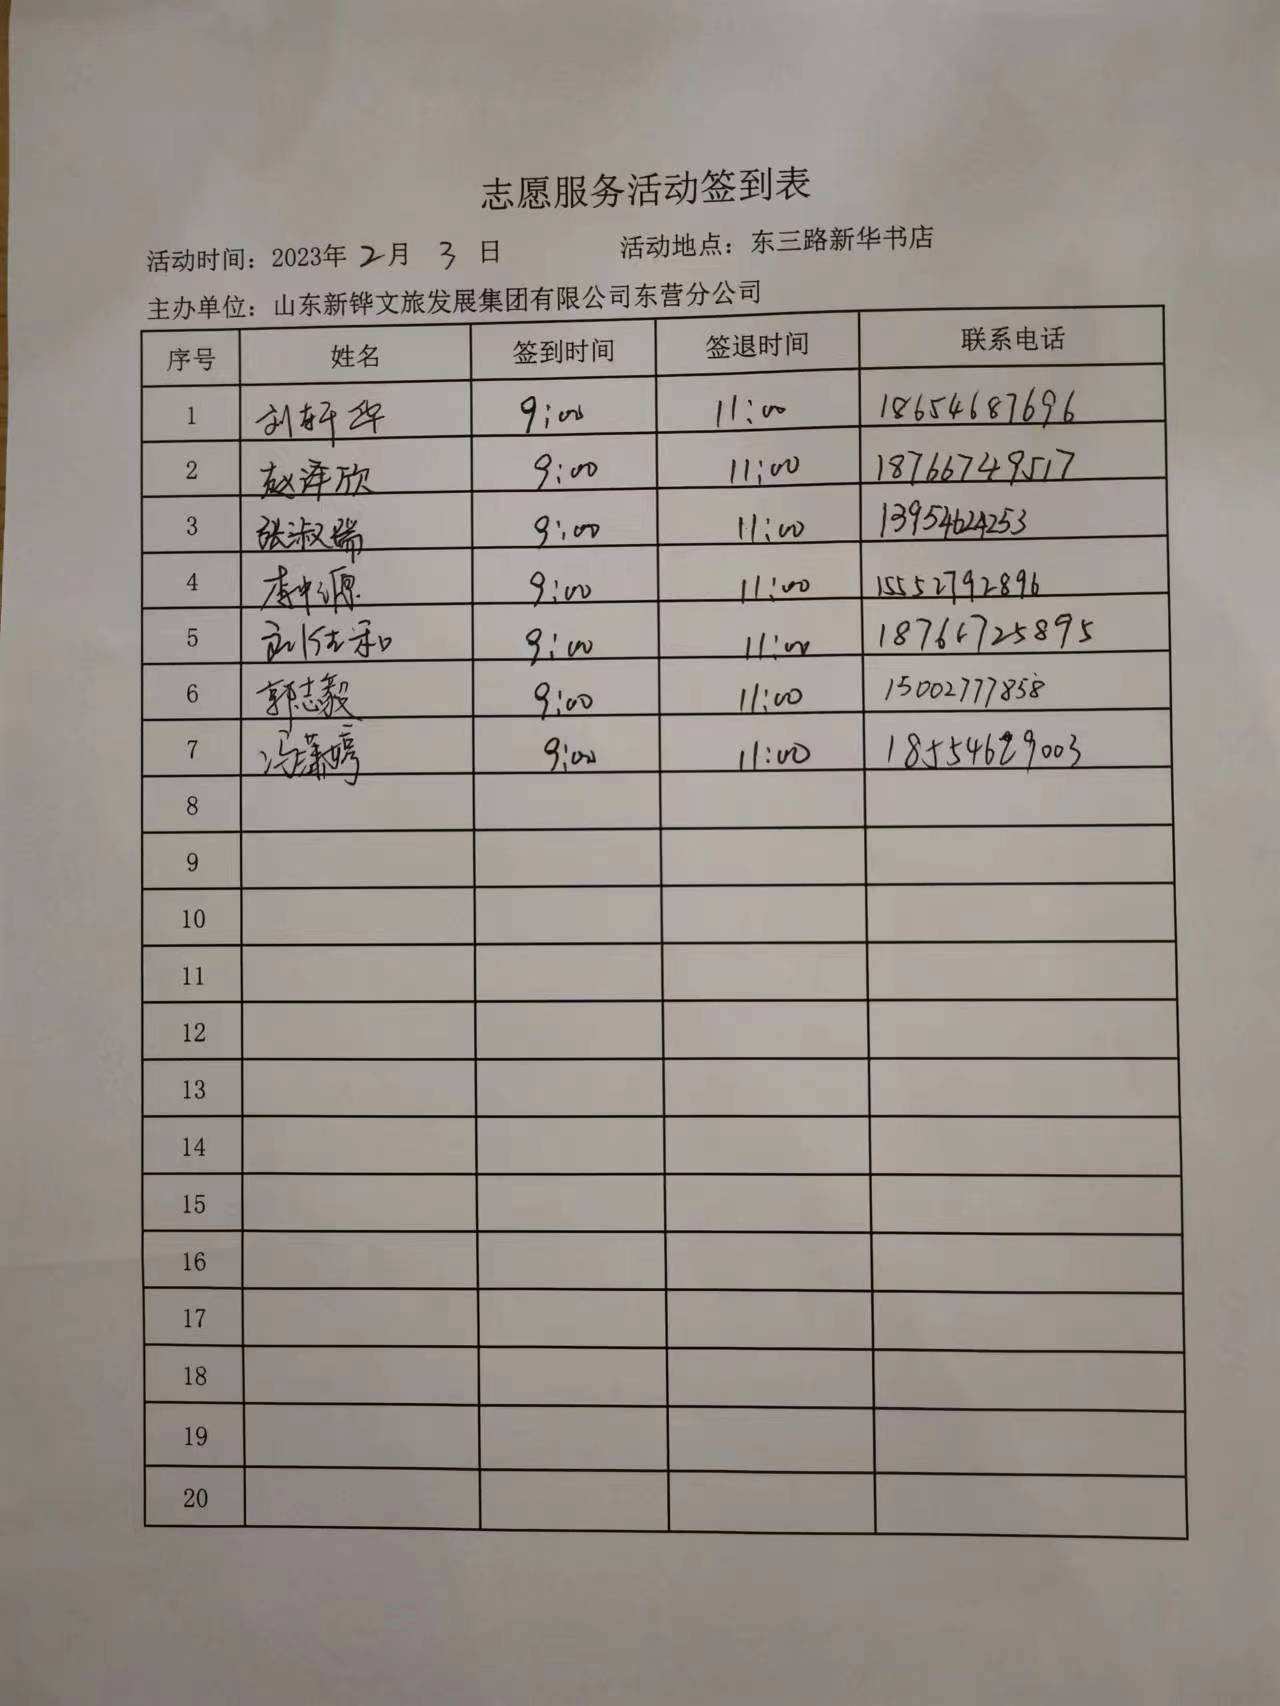 志愿服务活动签到表
活动时间：2023年 2月 3 日 活动地点：东三路新华书店
主办单位：山东新铧文旅发展集团有限公司东营分公司
序号 姓名 签到时间 签退时间 联系电话
1 刘轩华 9:00 11:00 18654687696
2 赵泽欣 9:00 11:00 18766749517
3 张淑瑞 9:00 11:00 13954624253
4 李中源 9:00 11:00 15552792896
5 9:00 11:00 18766725895
6 郭志毅 9:00 11:00 15002777858
7 冯潇婷 9:00 11:00 18554629003
8
9
10
11
12
13
14
15
16
17
18
19
20